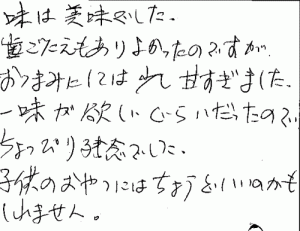 味は美味でした。
歯ごたえもありよかったのですが、
おつまみにしては少し甘すぎました。
一味が欲しいぐらいだったので
ちょっぴり残念でした。
子供のおやつにはちょうどいいのかも
しれません。